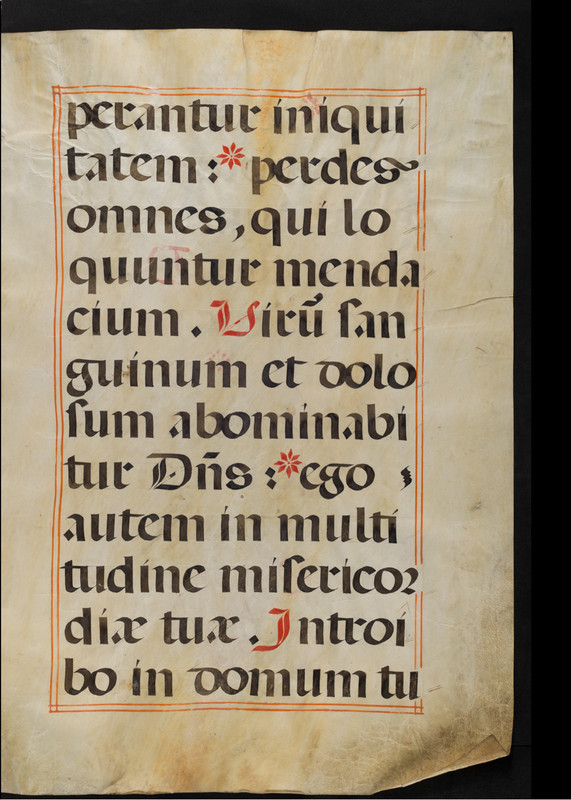 perantur iniqui
tatem :* perdes
omnes, qui lo
quuntur menda
cium . Virũ ſan
guinum et dolo
ſum abominabi
tur Dñs :* ego
autem in multi
tudine miſericoꝛ
diæ tuæ . Introi
bo in domum tu